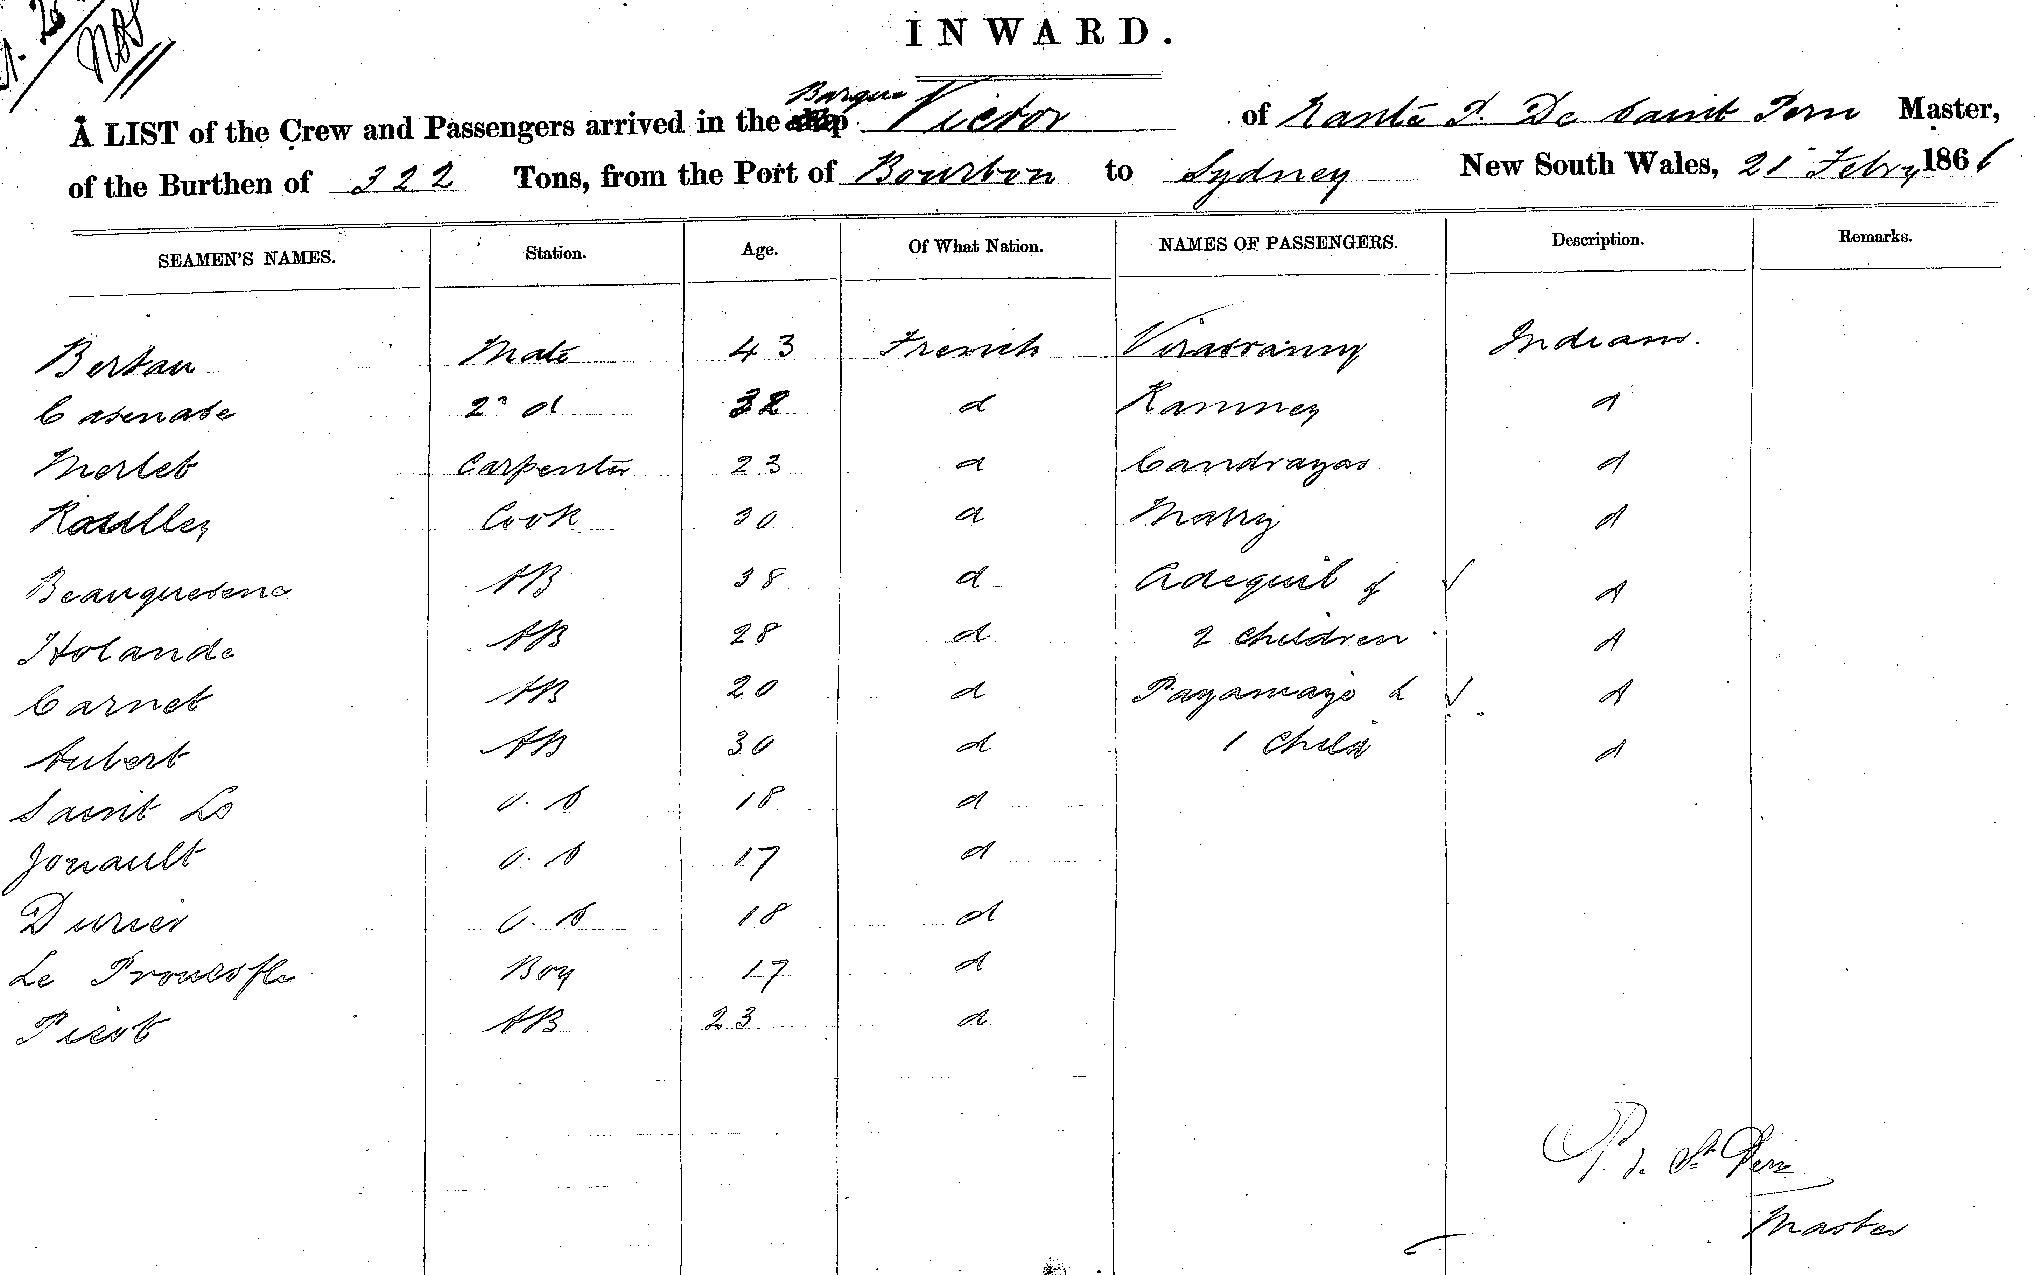 INWARD.
A LIST of the Crew and Passengers arrived in the Barque Victor of Nante P. De Saint Pern Master,
of the Burthen of 322 Tons, from the Port of Bourbon to Sydney New South Wales, 21 Febry 1861
SEAMEN'S NAMES. Station. Age. Of What Nation. NAMES OF PASSENGERS. Description. Remarks.
Bertau Mate 43 French Virassamy Indians.
Casenave 2nd d 32 d Ramney d
Merlet Carpenter 23 d Candrayas d
Raulley Cook 30 d Marry d
Beauquesene AB 38 d Adequil & d
Holande AB 28 d 2 children d
Carnet AB 20 d Pagamayo & d
Aubert AB 30 d 1 Child d
Saint Lo O.S 18 d
Jouault O.S 17 d
Durier O.S 18 d
Le Boy 17 d
Picot AB 23 d
P. de St Pern
Master